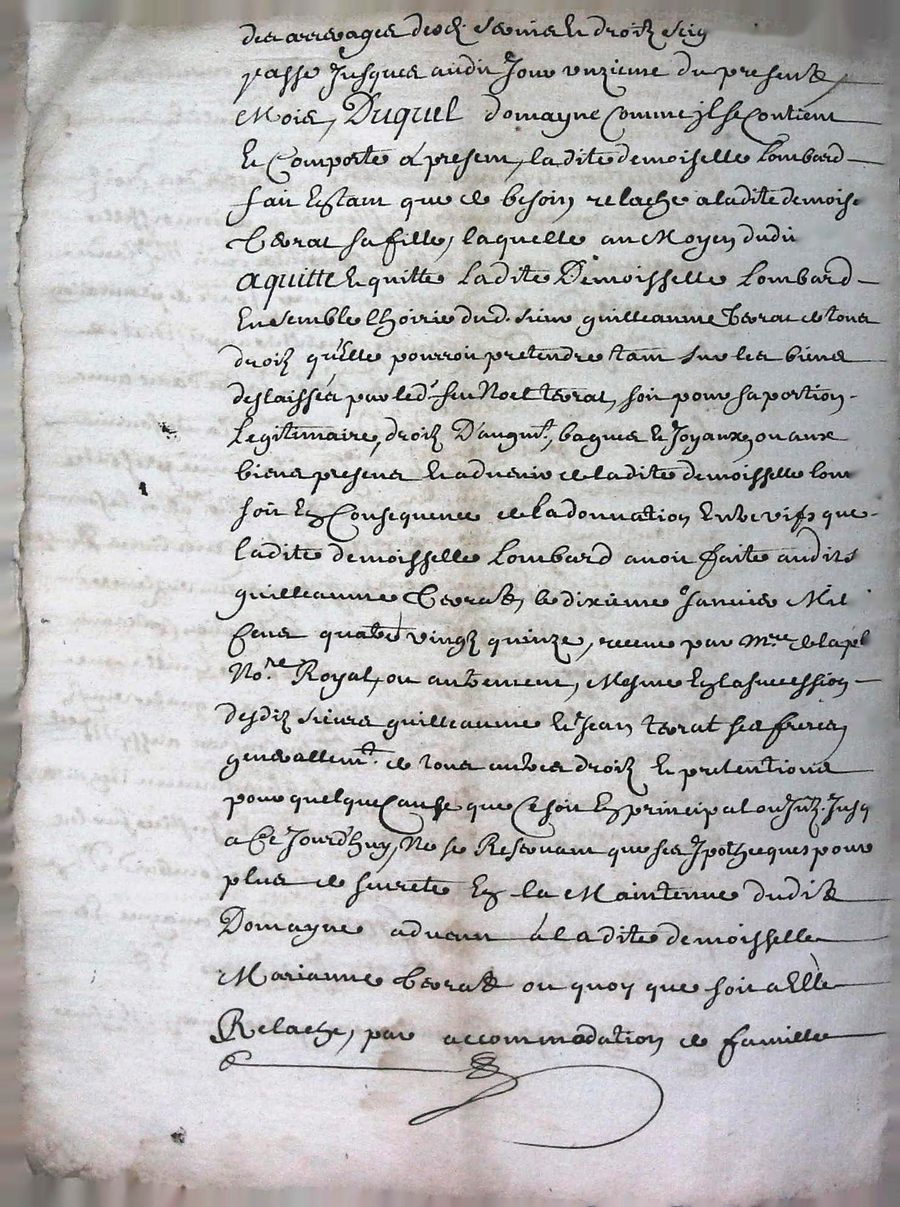 des arrerages desd. servis et droitz seig
passé Jusques audit Jour unzieme du present
Mois, Duquel domayne Comme jl se Contient
et Comporte á present, ladite demoiselle Lombard
fait Estant que de besoin relache a ladite demois.
Terrat sa fille, laquelle au Moyen dudit
aquitte et quitte Ladite Demoisselle Lombard
Ensemble Lhoirie dud. sieur guilleaume Terrat de tous
droitz qu'elle pourroit pretendre tant sur les biens
deslaissés par led. feu Noel terrat, soit pour sa portion
Legitimaire, droitz D'augmt., bagues et Joyaux, ou aux
biens presens et advenir de ladite demoisselle lom
soit En Consequence de la donnation Entre vifs que
ladite demoisselle Lombard avoit faite audits
guilleaume Terrat, le dixieme Janvier Mil
Cens quatre vingtz quinze, receue par Mre. delapl
No.re Royal, ou autrement, Mesme En la succession
desditz sieurs guilleaume et Jean terrat ses freres
generallemt. de tous autres droitz et pretentions
pour quelque Cause que Ce soit En principal ou Jntz. Jusq
a Ce Jourd'huy, Ne se Reservant que ses Jpotheques pour
plus de surreté En la Maintenue dudit
Domayne advenu á ladite demoisselle
Marianne Terrat ou quoy que soit a Elle
Relaché, par accommodation de famille